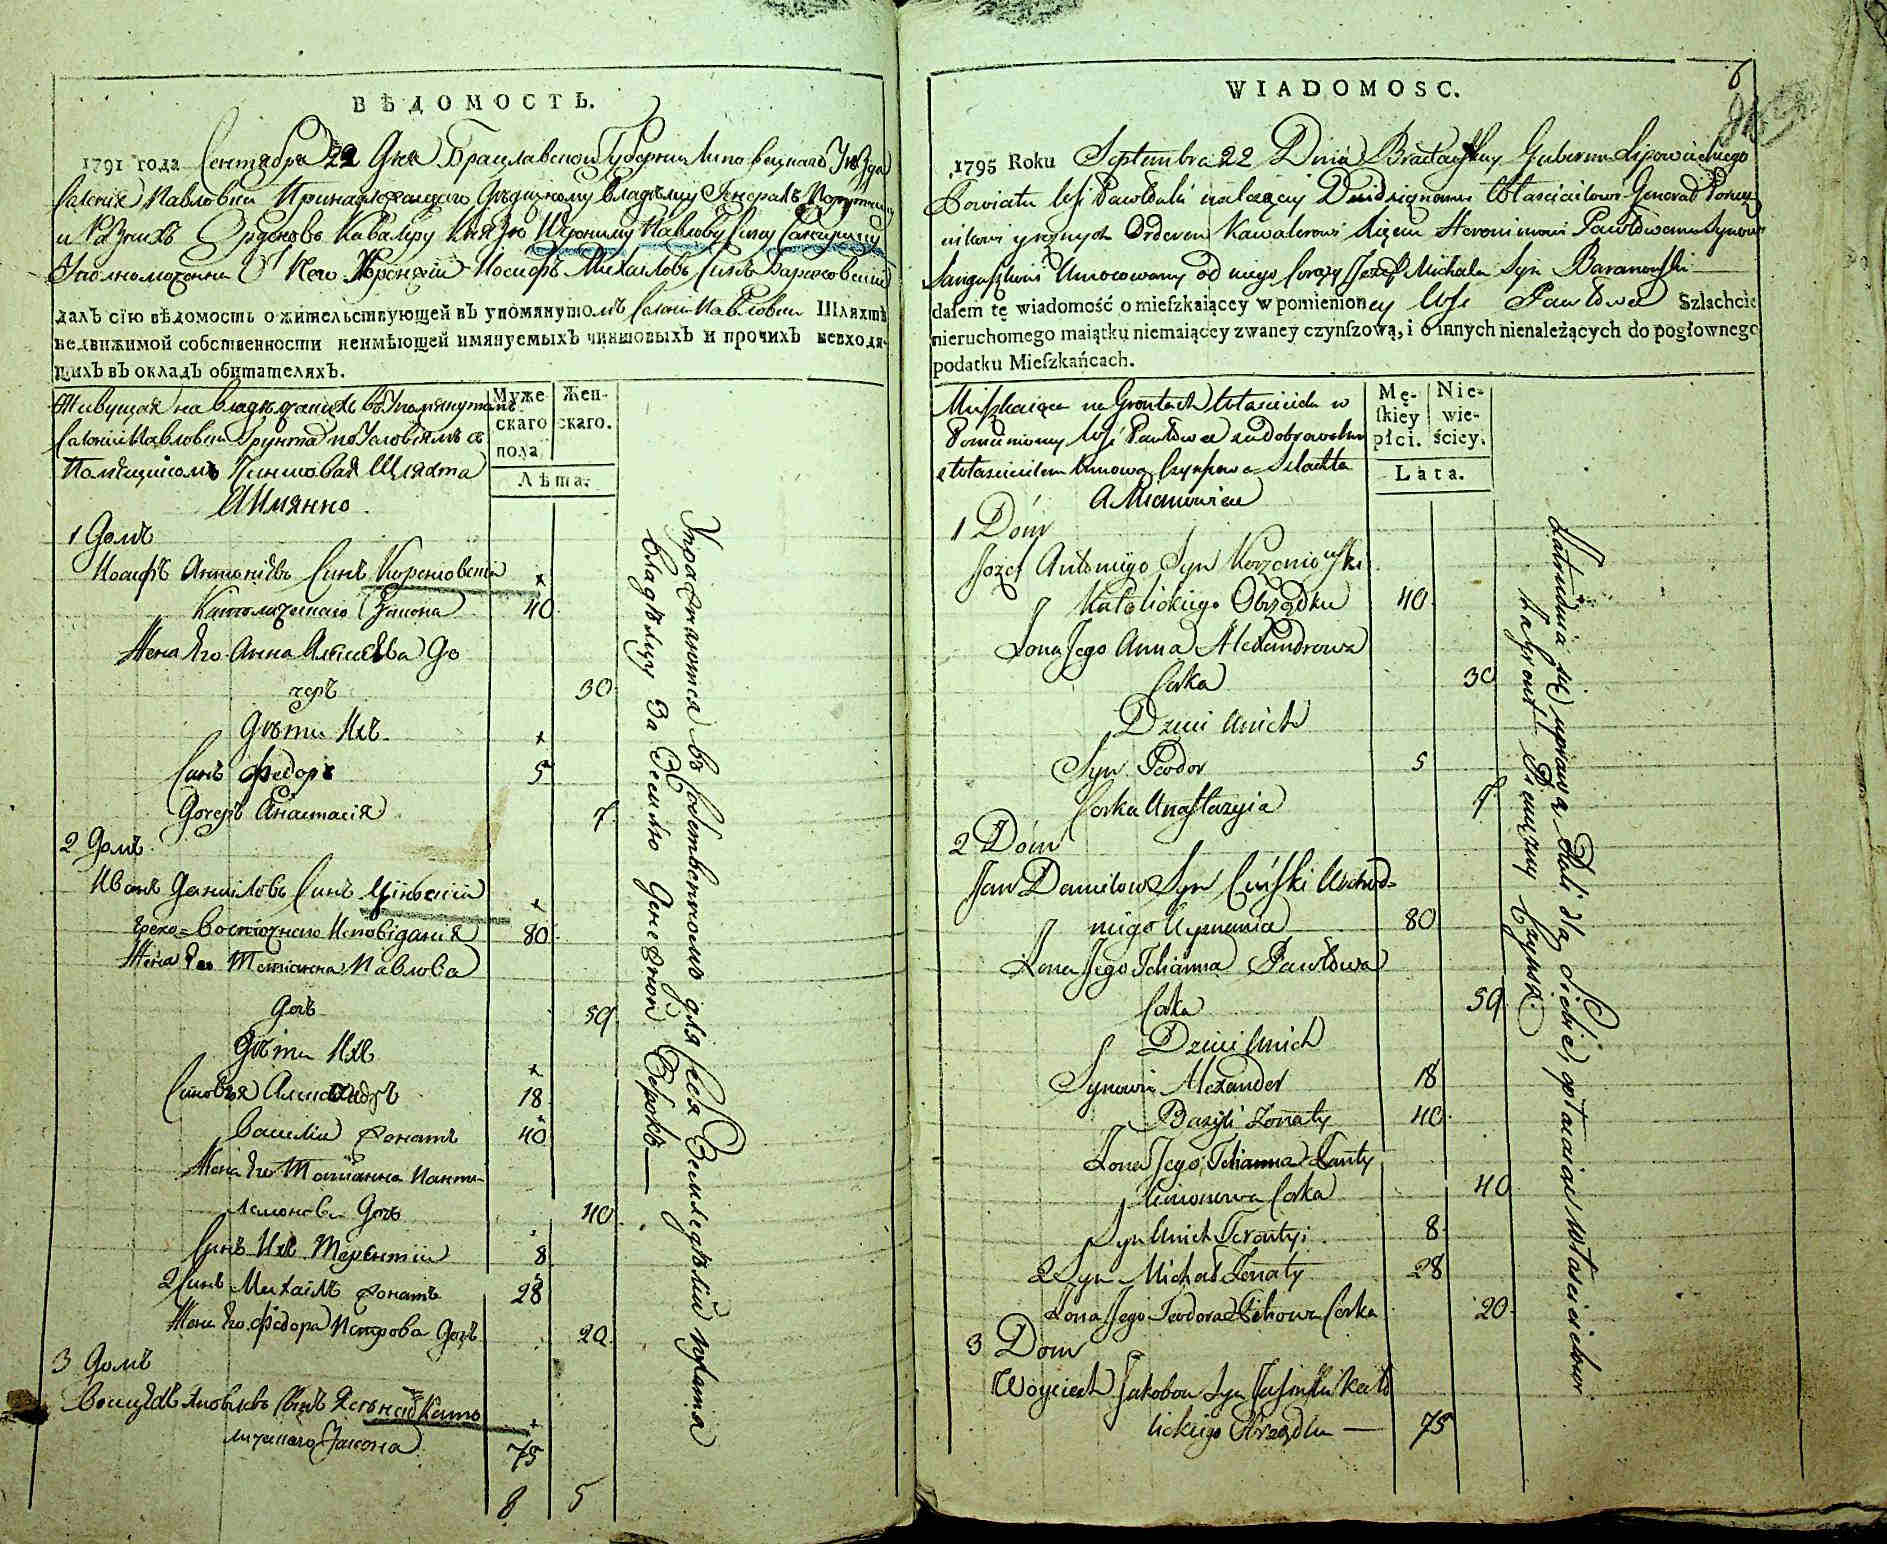 ВѢДОМОСТЬ.
1791 года Сентября 22 Дня Брацлавской Губернии Липовецкаго Уѣзда
Селенія Павловки Принадлежащаго Дѣдичному Владѣлцу Генералъ Порутчику
и Разныхъ Орденовъ Кавалеру Князю Иерониму Павлову Сину Сангушку
Уполномоченни Иосифъ Михаиловъ Синъ Барановский
далъ сію вѣдомость о жительствующей въ упомянутомъ Селеніи Павловки Шляхтѣ
недвижимой собственности неимѣющей имянуемыхъ чиншовыхъ и прочихъ невходя-
щихъ въ окладъ обитателяхъ.
Живущая на Владѣлческихъ въ Упомянутомъ
Селеніи Павловки Грунтахъ по Условіямъ съ
Помѣщикомъ Чиншовая Шляхта
А Имянно
Муже-
скаго
пола.
Жен-
скаго.
Лѣта.
1 Домъ
Иосифъ Антоніевъ Синъ Корженіовскій
Католическаго Закона 40
Жена Его Анна Алексѣева До
черъ 30
Дѣти Ихъ
Синъ Федоръ 5
Дочеръ Анастасія 7
2 Домъ
Иванъ Даниловъ Синъ Цинскій
Греко-Восточнаго Исповіданія 80
Жена Его Татіанна Павлова
Дочъ 59
Дѣти Ихъ
Синовья Александръ 18
Василій Жонатъ 40
Жена Его Татіанна Панти-
лемонова Дочъ 40
Синъ Ихъ Терентій 8
2 Синъ Михаилъ Жонатъ 28
Жена Его Федора Петрова Дочъ 20
3 Домъ
Войцѣхъ Яковлевъ Синъ Ясѣнскій Като
лическаго Закона 75
8 5
Упражняются въ Собственномъ для Себя Земледѣліи платя
Владѣлцу За Землю Денежной Оброкъ
WIADOMOSC.
6
1795 Roku Septembra 22 Dnia Bracławskiey Gubernii Lipowieckiego
Powiatu Wsi Pawłówki należącey Dziedzicznemu Właścicielowi Generał Porucz
nikowi y róznych Orderow Kawalerowi Xięciu Heronimowi Pawłowemu Synowi
Sanguszkowi Umocowany od niego Józef Michała Syn Baranowski
dałem tę wiadomość o mieſzkaiącey w pomienioney Wsi Pawłówce Szlachcie
nieruchomego maiątku niemaiącey zwaney czynſzową, i o innych nienależących do pogłownego
podatku Mieſzkańcach.
Mieszkaiąca na Gróntach Właściciela w
Pomienioney Wsi Pawłówce za dobrowolną
z Właścicielem Umową Czynszowa Szlachta
A Mianowicie
Mę-
ſkiey
płci.
Nie-
wie-
ściey.
Lata.
1 Dóm
Józef Antoniego Syn Korzeniowski
Katolickiego Obrządku 40
Zona Jego Anna Alexandrowa
Corka 30
Dzieci Unich
Syn Teodor 5
Corka Anastazyia 7
2 Dóm
Jan Daniłow Syn Cinski Wschod-
niego Wyznania 80
Zona Jego Tetianna Pawłowa
Corka 59
Dzieci Unich
Synowie Alexander 18
Bazyli Zonaty 40
Zona Jego Tetianna Panty
limonowa Corka 40
Syn Unich Terentyi 8
2 Syn Michał Zonaty 28
Zona Jego Teodora Corka 20
3 Dom
Woyciech Jakobow Syn Jasinski Kato
lickiego Obrządku — 75
Zatrudnia się uprawą Roli dla Siebie, opłacaiąc Właścicielowi
za grónt Pieniężny Czynsz.